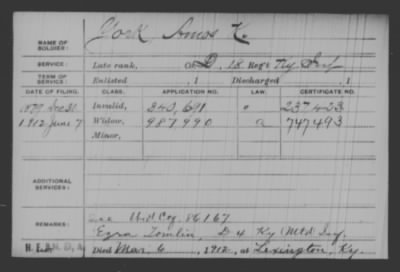 NAME OF SOLDIER: York Amos K.
SERVICE: Late rank, Co. D, 18 Reg't Ky. Inf
TERM OF SERVICE: Enlisted , 1 Discharged , 1
DATE OF FILING. CLASS. APPLICATION NO. LAW. CERTIFICATE NO.
1879 Dec 31 Invalid, 340,691 237423
1912 June 7 Widow, 987990 a 747493
Minor,
ADDITIONAL SERVICES:
REMARKS: Wid. Ctf. 86167
Ezra Tomlin, D 4 Ky. Mtd Inf.
Died Mar. 6, 1912, at Lexington, Ky.